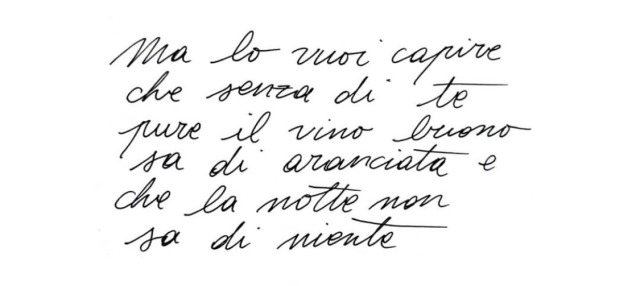 Ma lo vuoi capire
che senza di te
pure il vino buono
sa di aranciata e
che la notte non
sa di niente